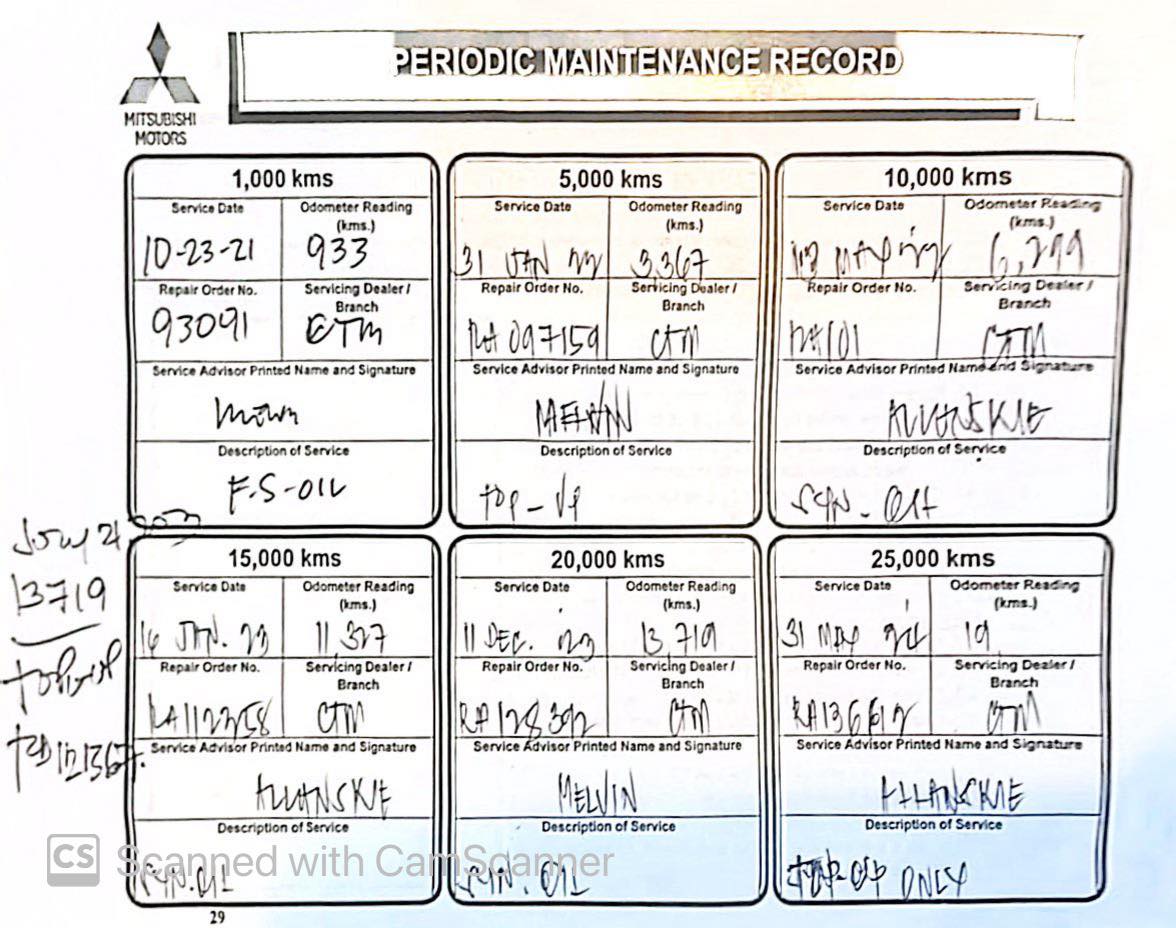 PERIODIC MAINTENANCE RECORD
MITSUBISHI
MOTORS
1,000 kms
Service Date
Odometer Reading
(kms.)
10-23-21
933
Repair Order No.
Servicing Dealer /
Branch
93091
CTM
Service Advisor Printed Name and Signature
Description of Service
F.S-OIL
5,000 kms
Service Date
Odometer Reading
(kms.)
31 JAN 22
3,367
Repair Order No.
Servicing Dealer /
Branch
RA 097159
CTM
Service Advisor Printed Name and Signature
MELVIN
Description of Service
TOP-UP
10,000 kms
Service Date
Odometer Reading
(kms.)
MAY 22
6,299
Repair Order No.
Servicing Dealer /
Branch
RA101
CTM
Service Advisor Printed Name and Signature
Description of Service
SYN. OIL
July 21, 2023
13719
RA121367.
15,000 kms
Service Date
Odometer Reading
(kms.)
16 JAN. 23
11,327
Repair Order No.
Servicing Dealer /
Branch
RA112358
CTM
Service Advisor Printed Name and Signature
Description of Service
SYN. OIL
20,000 kms
Service Date
Odometer Reading
(kms.)
11 DEC. 23
13,719
Repair Order No.
Servicing Dealer /
Branch
RA128392
CTM
Service Advisor Printed Name and Signature
MELVIN
Description of Service
SYN. OIL
25,000 kms
Service Date
Odometer Reading
(kms.)
31 MAY 24
19
Repair Order No.
Servicing Dealer /
Branch
RA136612
CTM
Service Advisor Printed Name and Signature
Description of Service
TOP-UP ONLY
CS Scanned with CamScanner
29